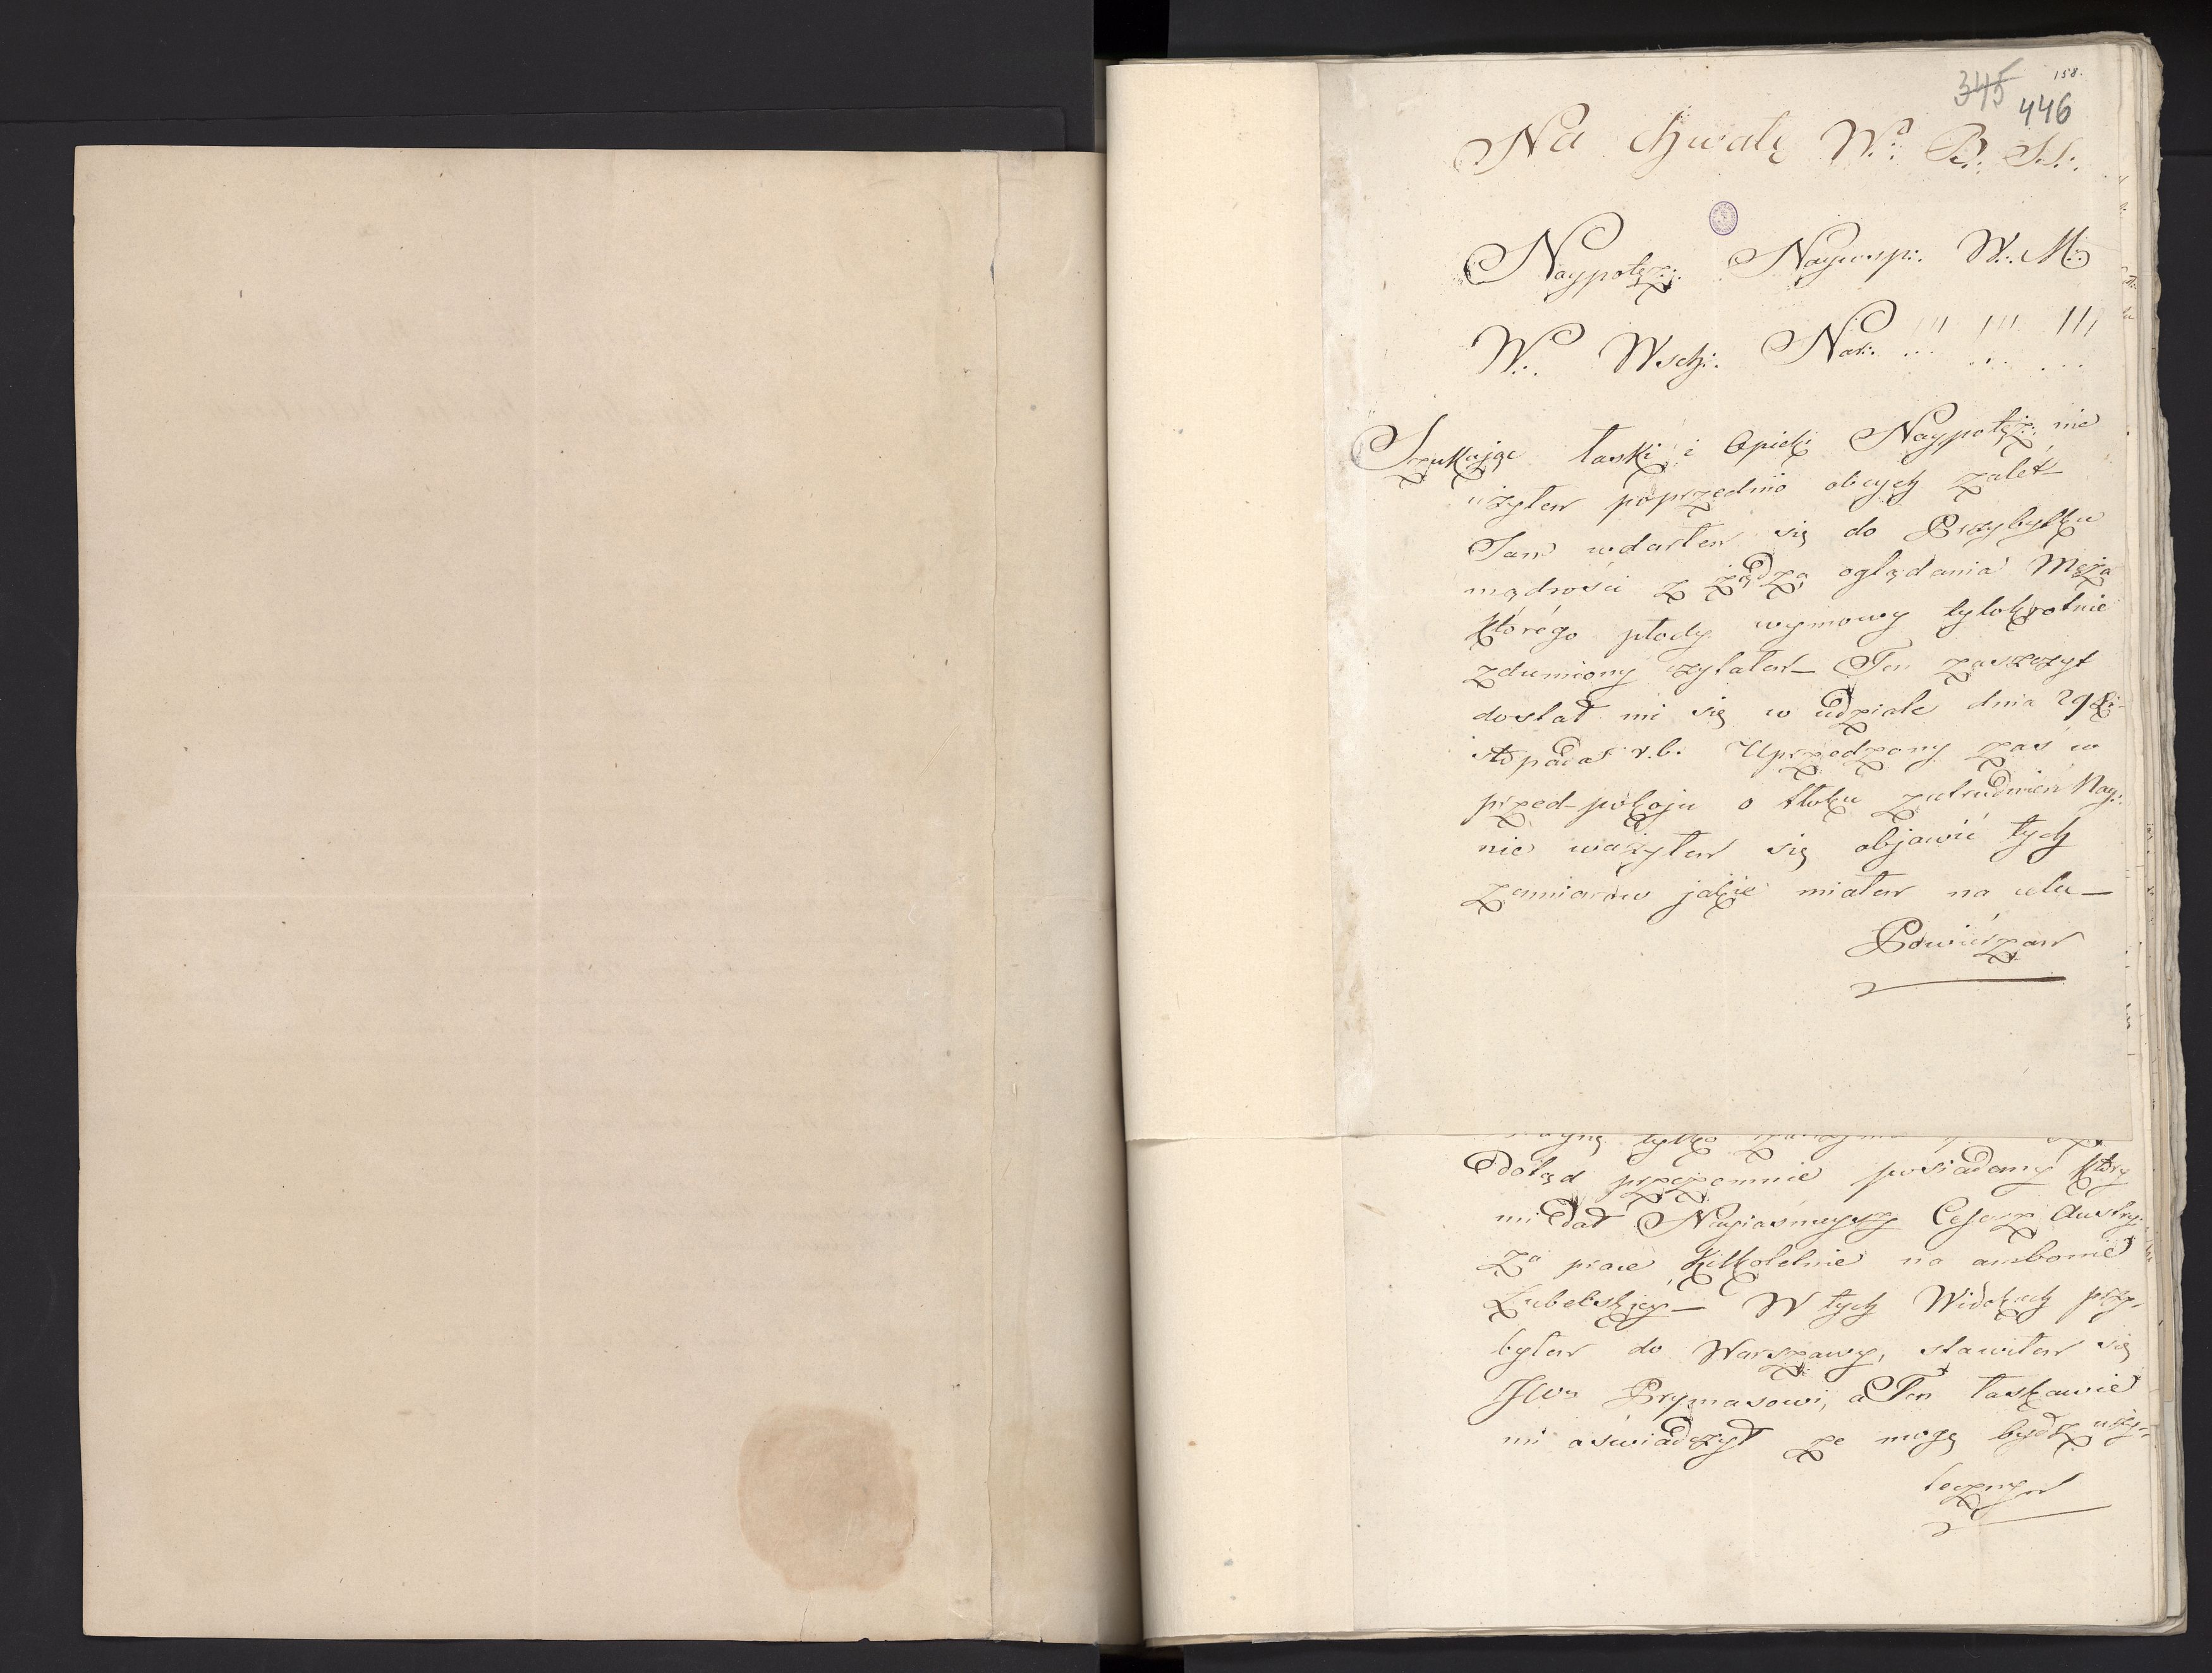 345 158.
446
Na chwałę W.: B.: S.S.:.
Naypotęż.: Nayosp.: W.: M.:
W.: Wsch.: Nar.: ... ... ...
Szukaiąc łaski i Opieki Naypotęż.: nie
użyłem poprzednio obcych zalet –
Sam wdarłem się do Przybytku
mądrości z żądzą oglądania Męża
którego płody wymowy tylokrotnie
zdumiony czytałem – Ten zaszczyt
dostał mi się w udziale dnia 29 Li-
stopada r. b. Uprzedzony zaś w
przed-pokoju o tłoku zatrudnień Nay.:
nie ważyłem się objawić tych
zamiarów jakie miałem na celu –
Powierzam
tylko
dotąd przezemnie posiadany który
mi dał Nayiaśnieyszy Cesarz Austry.
za prace kilkoletnie na ambonie
Lubelskiey – W tych widokach przy-
byłem do Warszawy, stawiłem się
JWu Prymasowi, a Ten łaskawie
mi oświadczył że mogę bydź uży-
tecznym